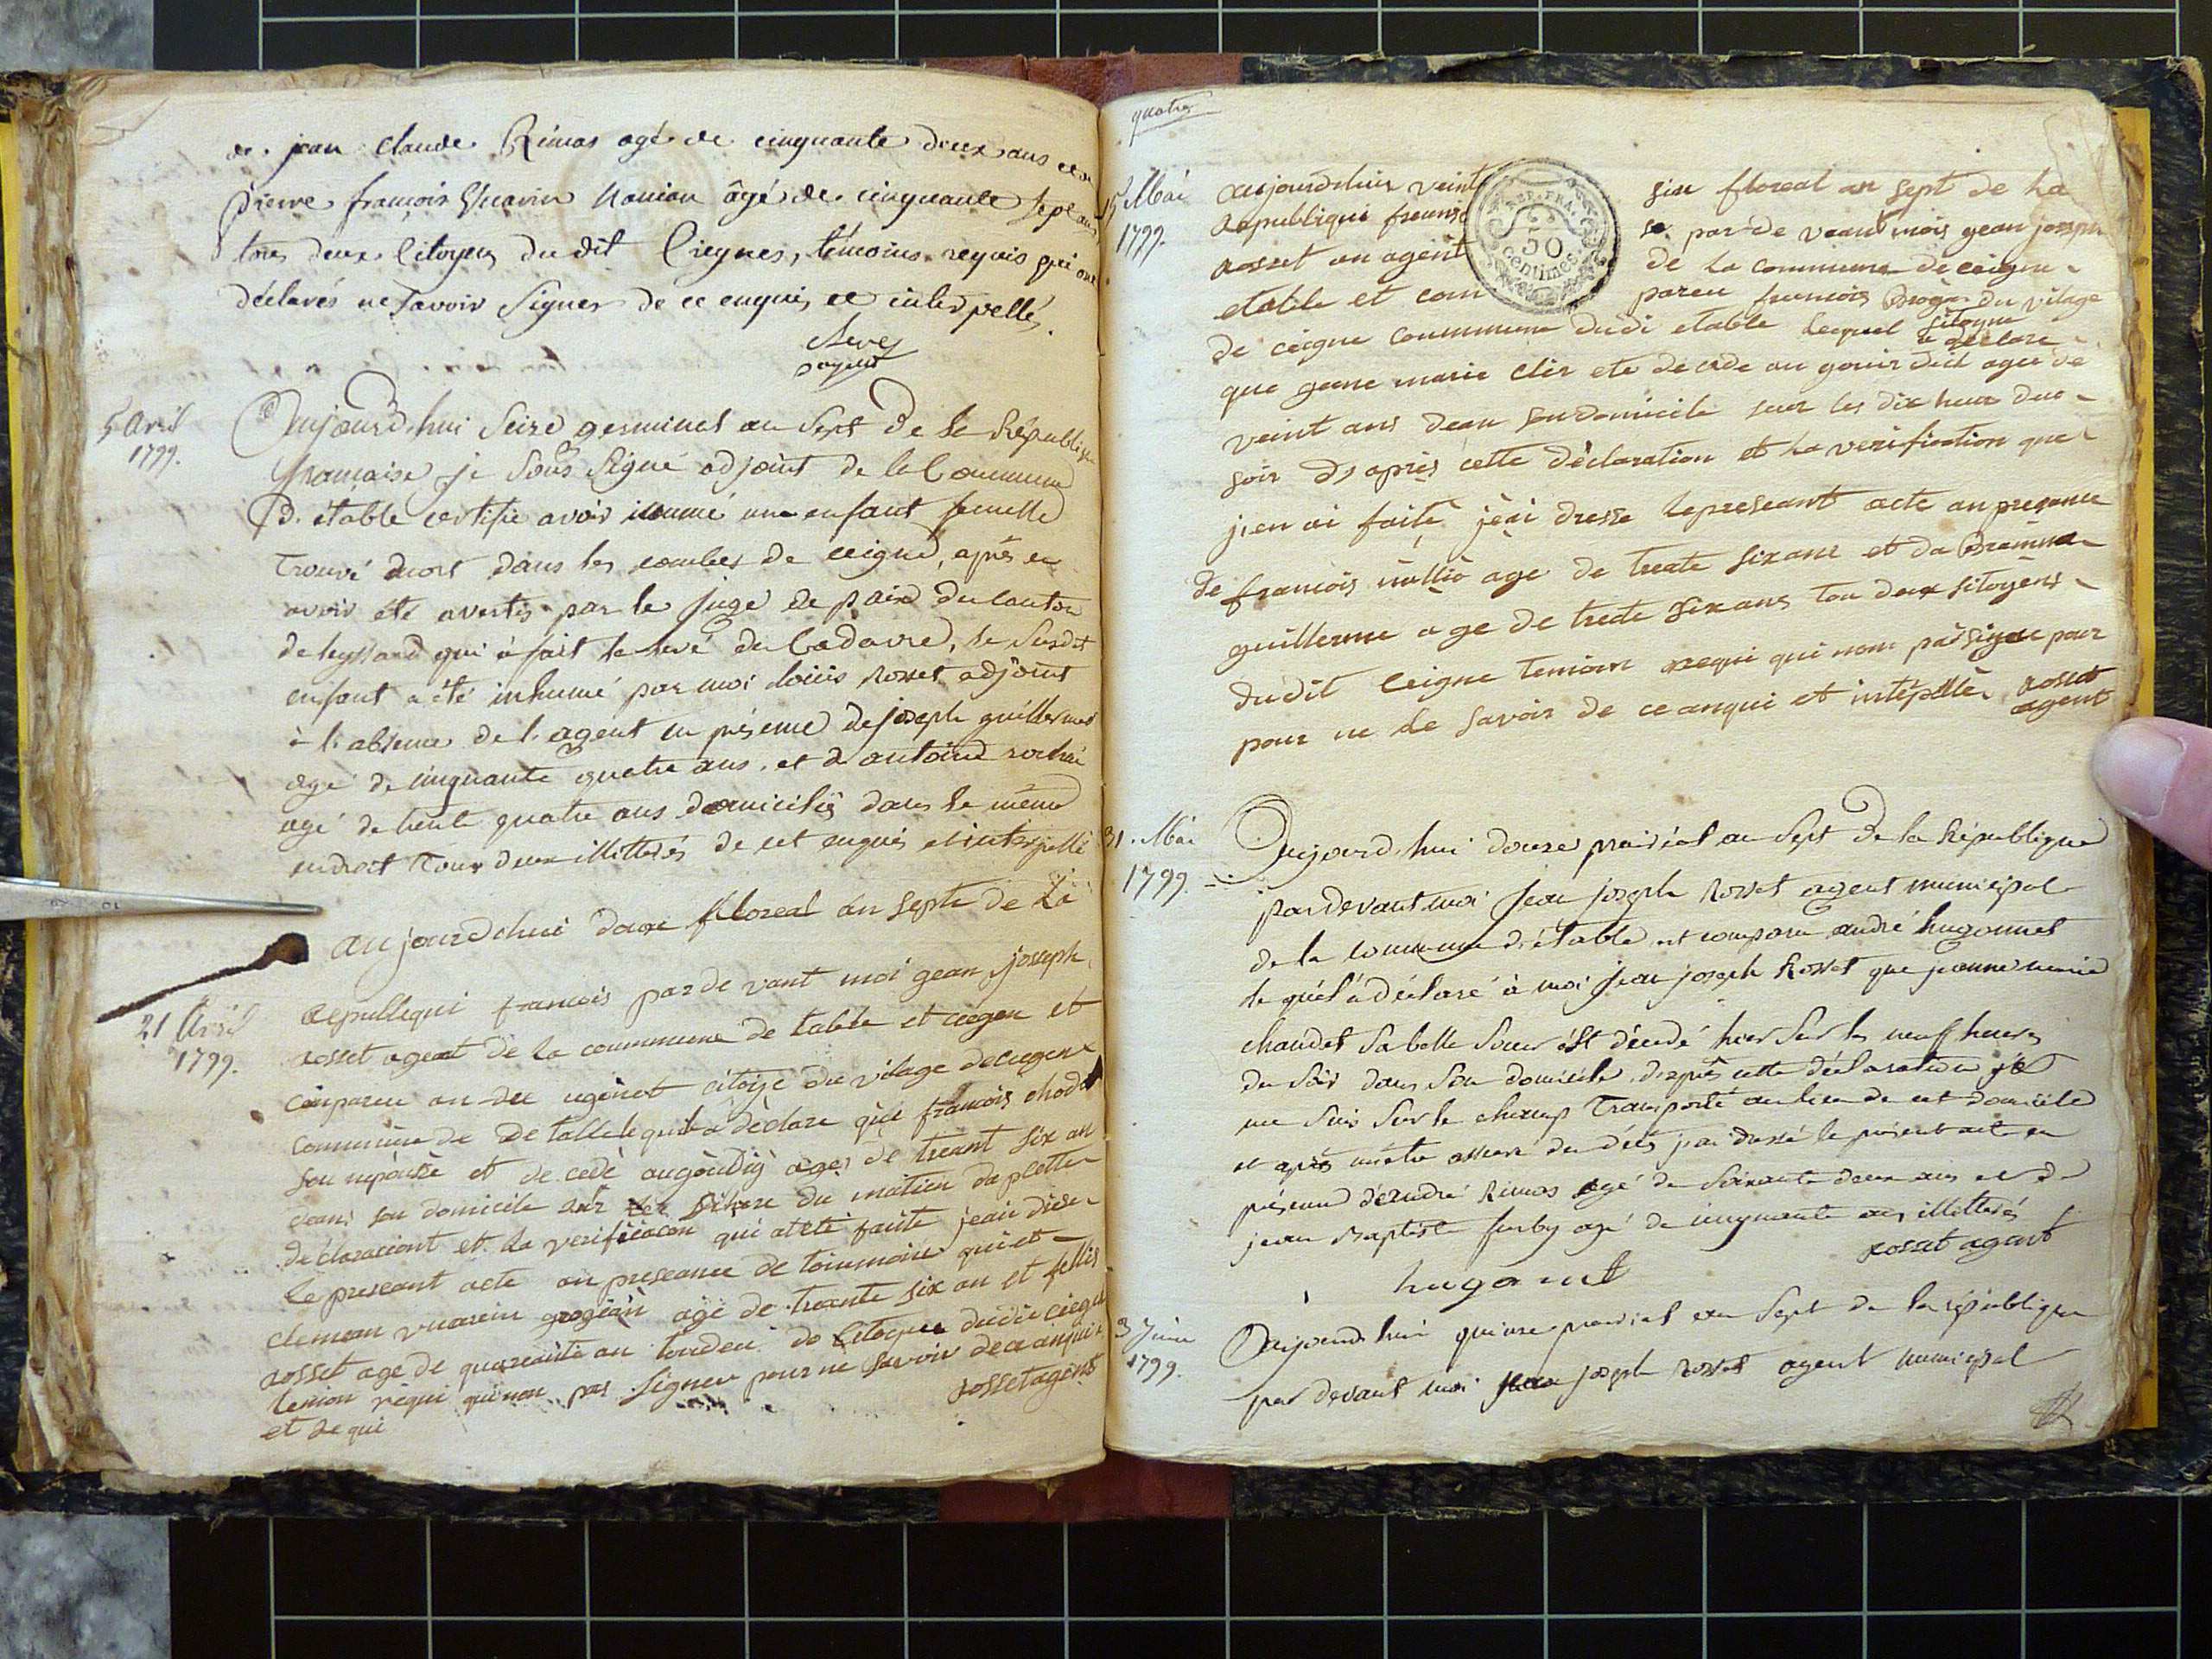 de jean Claude Rimas agé de cinquante deux ans et de
pierre françois Vuarin agé de cinquante sept ans
tous deux Citoyens du dit Ciegnes, témoins requis qui ont
déclarés ne Savoir Signer de ce enquis et interpellés.
5 Avril
1799.
Aujourd'hui Seize germinal an Sept de la République
française je Sous Signé adjoint de la Commune
d'étable certifie avoir inumé une enfant femelle
trouvé mort dans les combes de ceigne, après en
avoir été avertis par le juge de paix du Canton
de leyssard qui à fait la levé du Cadavre, le Susdit
enfant a été inhumé par moi Rosset adjoint
à l'absence de l'agent en présence de joseph guillermet
agé de cinquante quatre ans, et d antoine
agé de trente quatre ans domiciliés dans le même
endroit tous deux illittérés de cet enquis et interpellé
aujourdhui doux floreal an septe de La
21 Avril
1799.
Republiqui francois parde vant moi gean joseph
rosset agent de la coummune de table et et
conparu an dre ugonet du vilage
coummune de De table lequel a dèclare que francois
son nepouse et de cedè augoudig ages de treant six an
dans son domicile du matien
dèclaraciont et la qui atete faite jeai drese
le preseant acte an preseance de
clemean vuarein agé de treante six an et
rosset age de quareante an
temion requi qui non pas Signer pour ne Savoir de ce anqui
et de qui rosset agent
quatre
15 Mai
1799.
aujourdhui veint six floreal an sept de La
Republique par de veant mois gean joseph
Rosset an agent de La commune de ceigne
etable et com pareu francois du vilage
de ceigne coummune dudi etable Lequel sitoyne a declare
que geane marie cler ete de cede au gouir duit agee de
veint ans dean son domicile seur les dix heur duo
soir D, après cette dèclaration et La verification que
j,en ai faite jèai dresse Lepreseant acte an preseance
de francois age de treate six ans et da
guillerme age de treate six ans tou deux sitoyens
dudit Ceigne temion requi qui nom pas signe pour
pour ne Le savoir de ce anqui et rosset
agent
31. Mai
1799.
Aujourd'hui douze prairial an Sept de la République
pardevant moi Jean joseph Rosset agent municipal
de la commune d'étable est comparu andré hugonnet
le quel à déclaré à moi Jean joseph Rosset que jeanne marie
chaudet Sa belle Soeur est décédé hier Sur les neuff heures
du Soir dans Son domicile, d'après cette déclaration je
me Suis Sur le champ Transporté au lieu de cet domicile
et après m'être assuré du décès j'ai dressé le présent acte en
présence d'andré Rimas agé de Soixante deux ans et de
jean Baptiste furby agé de cinquante ans illittérés
rosset agent
hugonet
3 Juin
1799.
Aujourd'hui quinze prairial an Sept de la république
par devant moi Jean joseph Rosset agent municipal
REP. FRA.
50
centimes